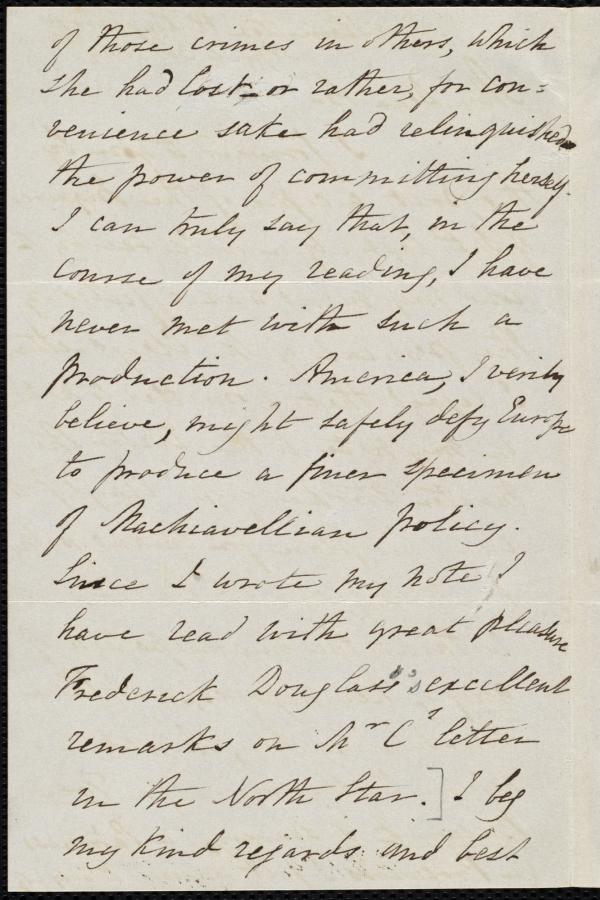 of those crimes in others, which
she had lost - or rather, for con=
venience sake had relinquished
the power of committing herself.
I can truly say that, in the
course of my reading, I have
never met with such a
production. America, I verily
believe, might safely defy Europe
to produce a finer specimen
of Machiavellian policy.
Since I wrote my note I
have read with great pleasure
Frederick Douglass's excellent
remarks on Mr C's letter
in the North Star.] I beg
my kind regards and best